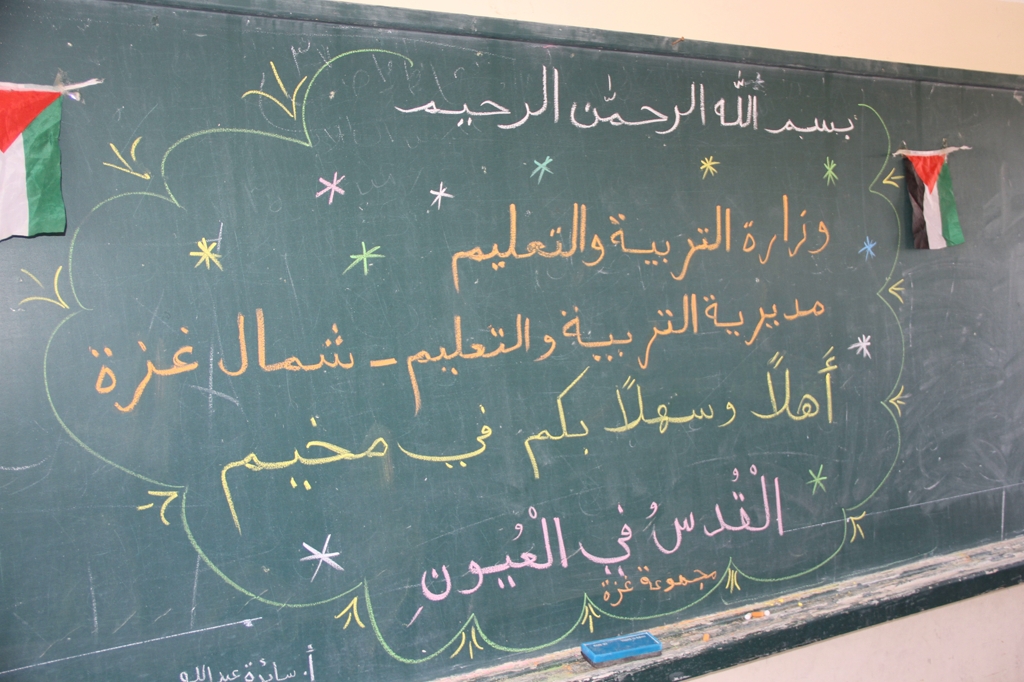 بسم الله الرحمٰن الرحيم
وزارة التربية والتعليم
مديرية التربية والتعليم - شمال غزة
أهلاً وسهلاً بكم في مخيم
الْقُدسُ في الْعُيونِ
مجموعة غزة
أ. سائرة عبد الله